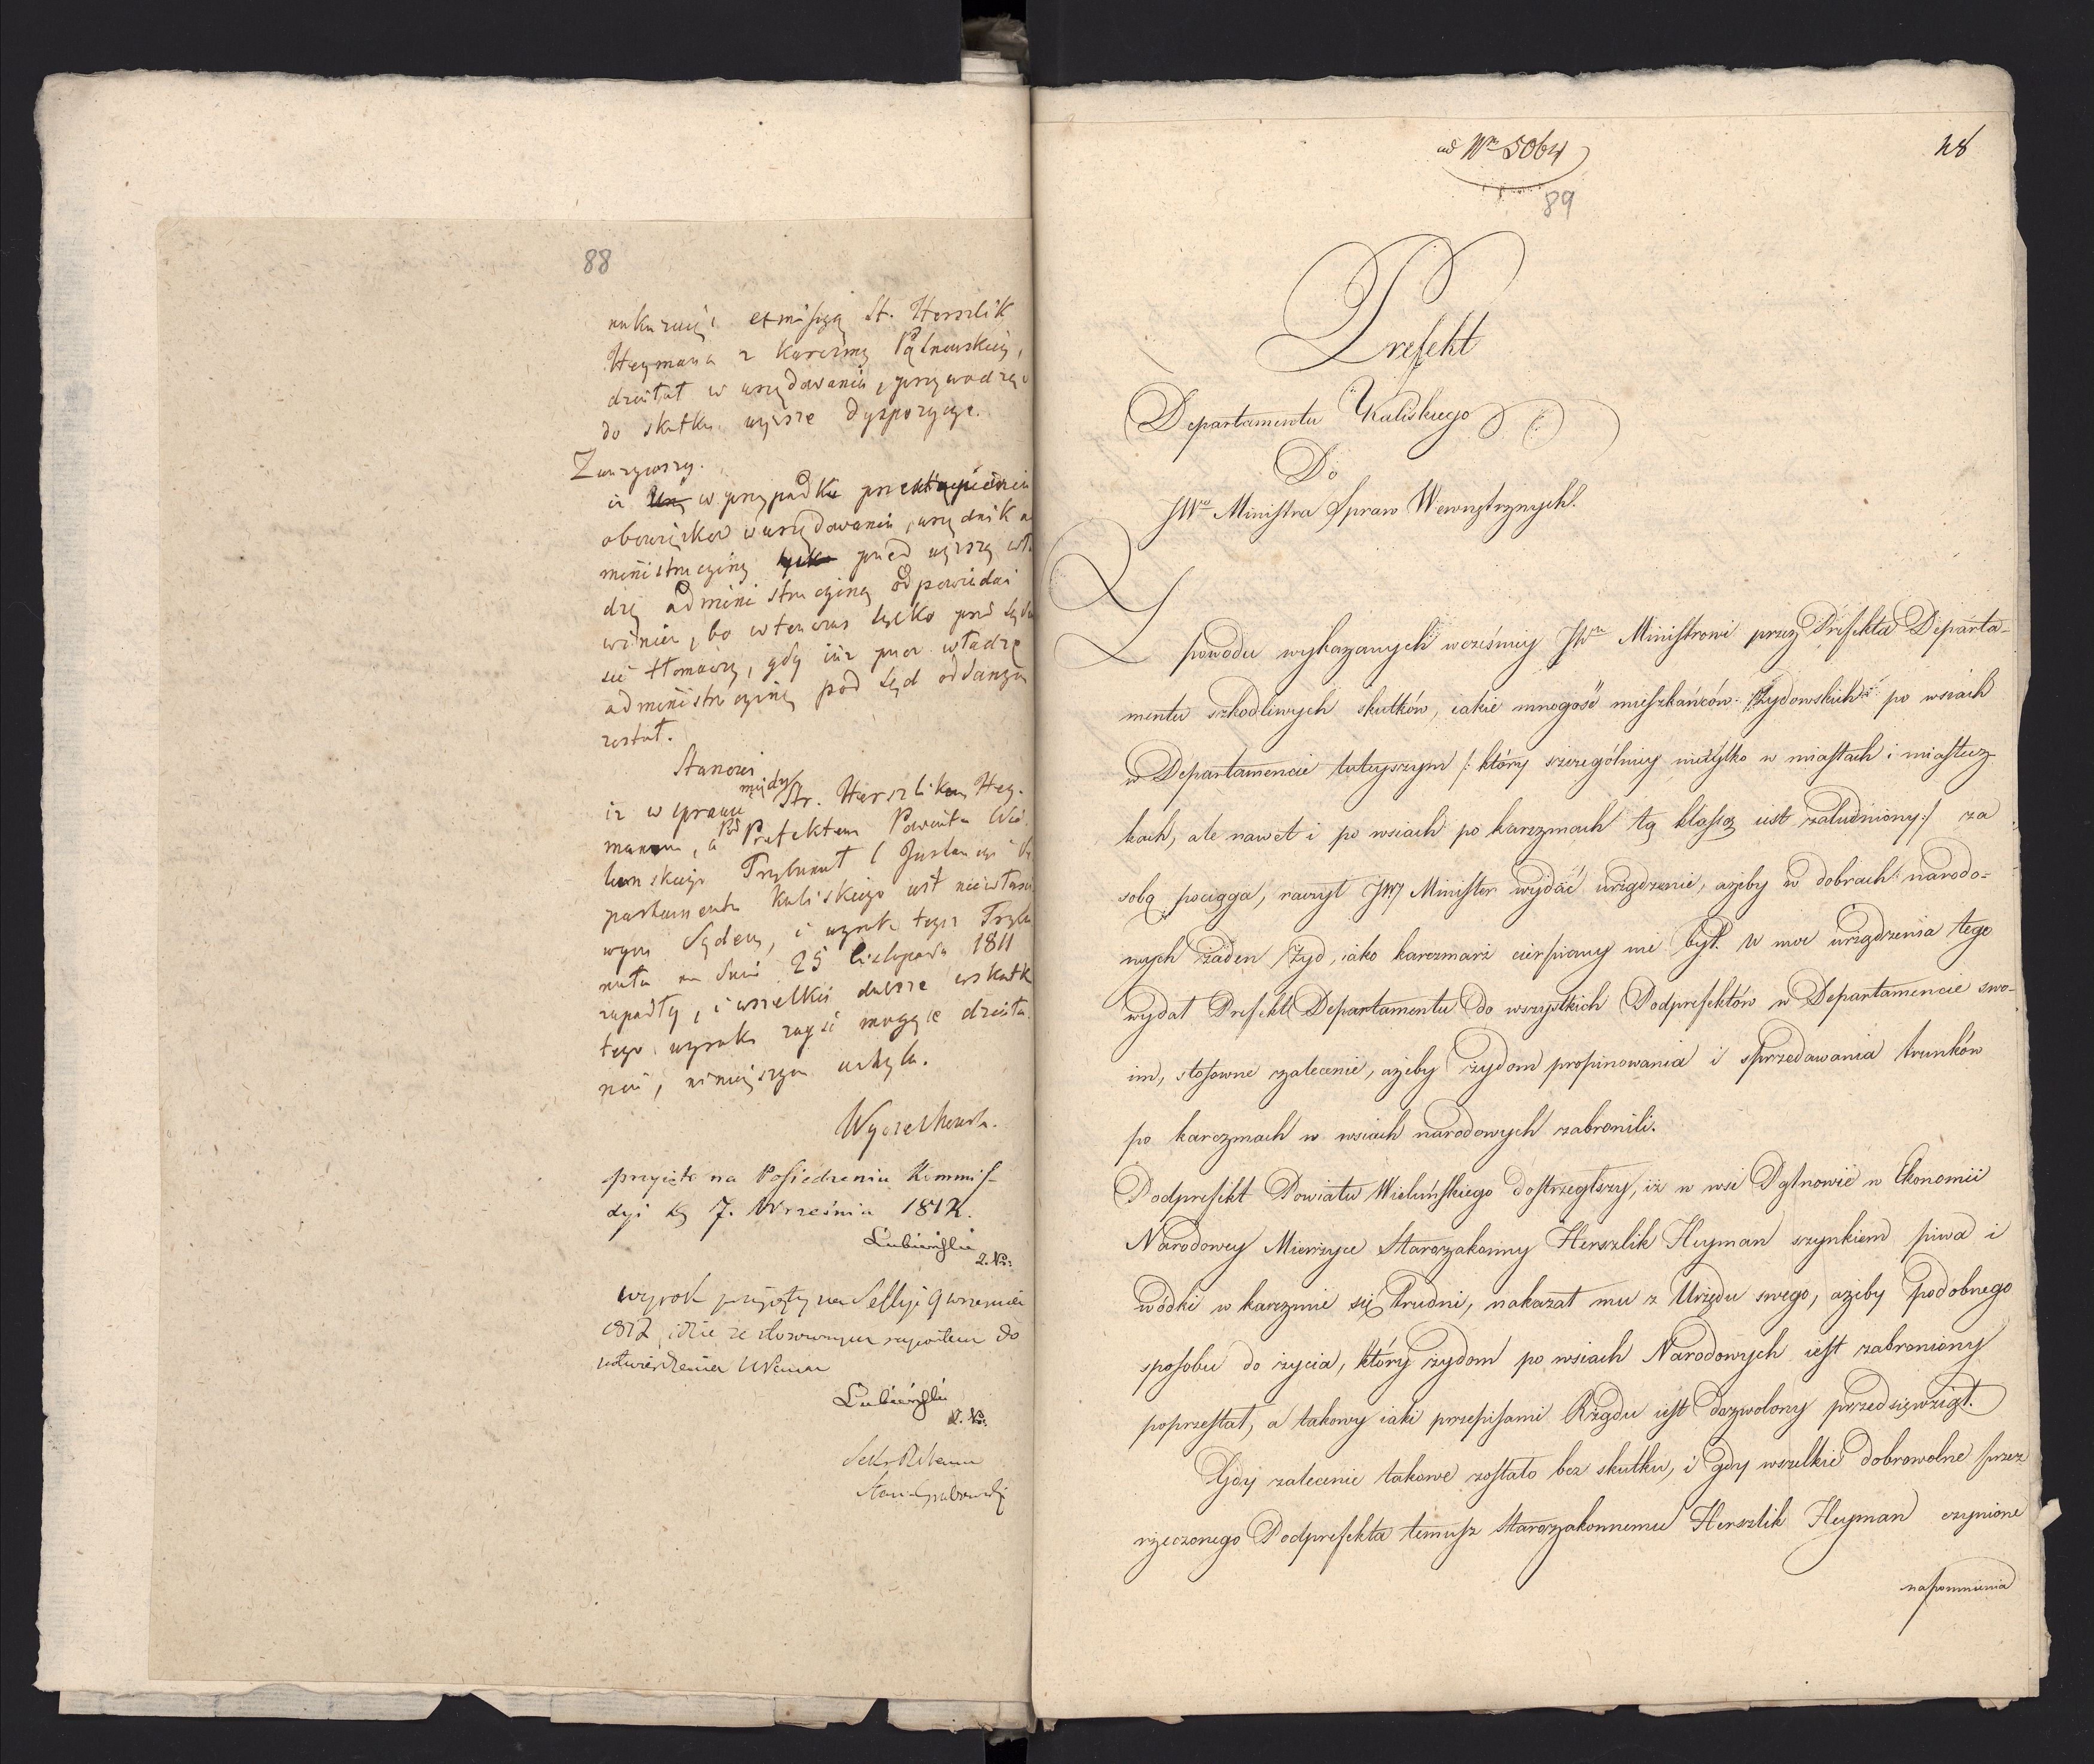 88
nakazując exmissyą St. Herszlik
Heymana z karczmy Pątnowskiey,
działał w urzędowaniu, przywodząc
do skutku wyższe dyspozycye.
Zważywszy.
iż w przypadku przestąpienia
obowiązków w urzędowaniu, urzędnik ad
ministracyiny przed wyższą wła
dzą administracyiną odpowiadać
winien, bo wtenczas tylko przed Sądem
się tłomaczy, gdy iuż przez władzę
administracyiną pod Sąd oddanym
został.
Stanowi
iż w sprawie między St. Herszlikiem Hey-
manem, a Pod Prefektem Powiatu Wie
luńskiego Trybunał I Instancyi De
partamentu Kaliskiego iest niewłaści
wym Sądem, i wyrok tegoż Trybu
nału na dniu 25 Listopada 1811
zapadły, i wszelkie dalsze w skutku
tego wyroku zayść mogące działa
nia, ninieyszym uchyla.
Wyczechowski.
przyięto na Posiedzeniu Kommis-
syi dnia 7. Września 1812.
Łubieński
wyrok przyięty na Sessyi 9 września
1812 idzie ze stosownym raportem do
zatwierdzenia
Łubieński
Sekr
Stan Grabowski
ad Nro 5064
28
89
Prefekt
Departamentu Kaliskiego
Do
JWo Ministra Spraw Wewnętrznych.
Z powodu wykazanych wcześniey JWu Ministrowi przez Prefekta Departa-
mentu szkodliwych skutków, iakie mnogość mieszkańców Żydowskich po wsiach
w Departamencie tuteyszym /: który szczególniey nietylko w miastach i miastecz-
kach, ale nawet i po wsiach po karczmach tą klassą iest zaludniony :/ za
sobą pociąga, raczył JW Minister wydać urządzenie, ażeby w dobrach narodo-
wych żaden Żyd, iako karczmarz cierpiany nie był. W moc urządzenia tego
wydał Prefekt Departamentu do wszystkich Podprefektów w Departamencie swo-
im, stosowne zalecenie, ażeby żydom propinowania i sprzedawania trunków
po karczmach w wsiach narodowych zabronili.
Podprefekt Powiatu Wieluńskiego dostrzegłszy, iż w wsi Pątnowie w Ekonomii
Narodowey Mierzyce Starozakonny Herszlik Heyman szynkiem piwa i
wódki w karczmie się trudni, nakazał mu z Urzędu swego, ażeby podobnego
sposobu do życia, który żydom po wsiach Narodowych iest zabroniony
poprzestał, a takowy iaki przepisami Rządu iest dozwolony przedsięwziął.
Gdy zalecenie takowe zostało bez skutku, i gdy wszelkie dobrowolne przez
rzeczonego Podprefekta temuż Starozakonnemu Herszlik Heyman czynione
napomnienia